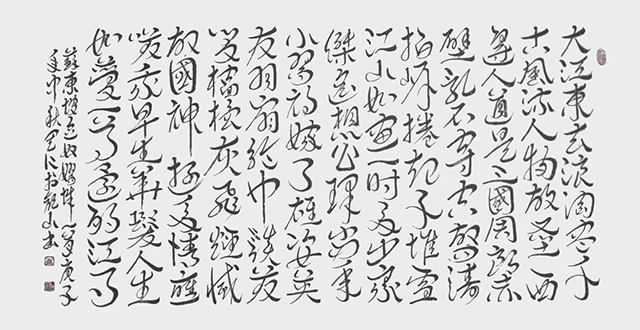 大江東去浪淘盡千
古風流人物故壘西
邊人道是三國周郎赤
壁亂石穿空驚濤
拍岸捲起千堆雪
江山如畫一時多少豪
傑遙想公瑾當年
小喬初嫁了雄姿英
發羽扇綸巾談
檣櫓灰飛煙滅
故國神遊多情應
笑我早生華髮人生
如夢一尊還酹江月
蘇東坡念奴嬌 庚子
年中秋 書